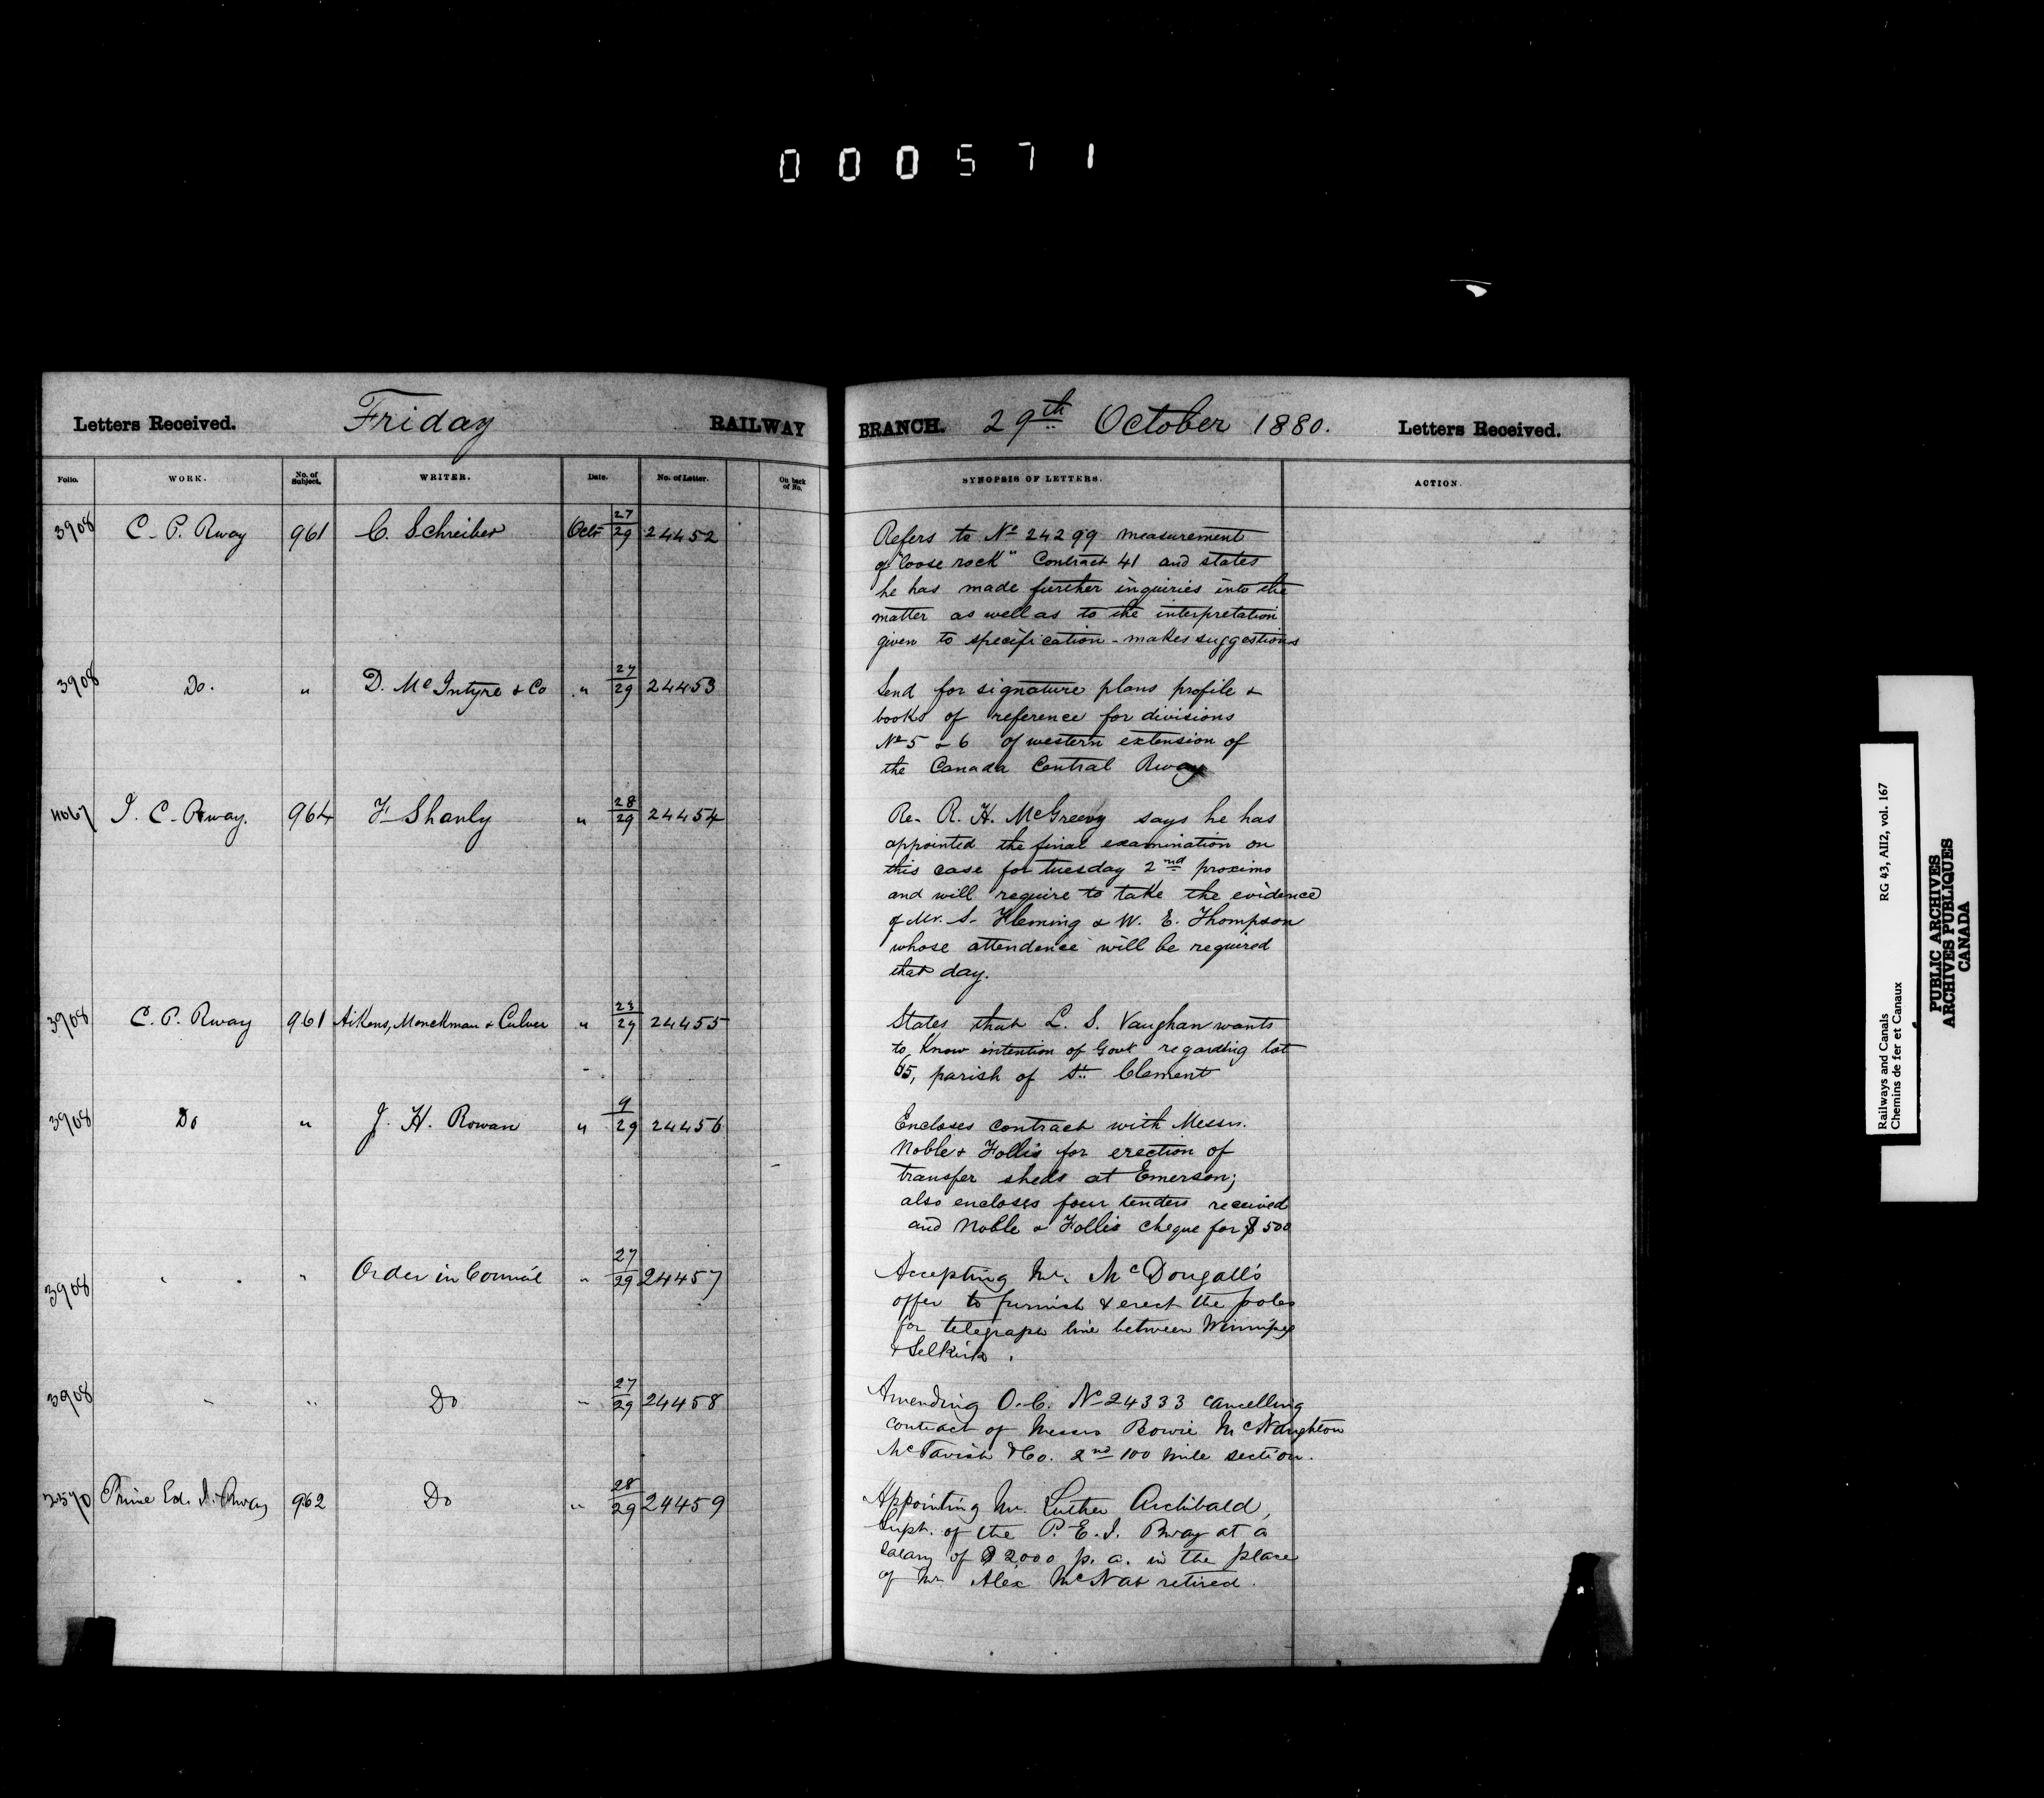 000571
Letters Received. Friday RAILWAY BRANCH. 29th October 1880. Letters Received.
Folio. WORK. No. of Subject. WRITER. Date. No. of Letter. On back of No. SYNOPSIS OF LETTERS. ACTION.
3908 C. P. Rway 961 C. Schreiber Octr 27/29 24452
Refers to No 24299 measurement
of "loose rock" Contract 41 and states
he has made further inquiries into the
matter as well as to the interpretation
given to specification - makes suggestions
3908 Do. " D. McIntyre & Co " 27/29 24453
Send for signature plans profile &
books of reference for divisions
No 5 & 6 of western extension of
the Canada Central Rway
4067 I. C. Rway. 964 F. Shanly " 28/29 24454
Re. R. H. McGreevy says he has
appointed the final examination on
this case for tuesday 2nd proximo
and will require to take the evidence
of Mr. S. Fleming & W. E. Thompson
whose attendence will be required
that day.
3908 C. P. Rway 961 Aikens, Monckman & Culver " 23/29 24455
States that L. S. Vaughan wants
to know intention of Govt regarding lot
65, parish of St. Clement
3908 Do " J. H. Rowan " 9/29 24456
Encloses contract with Messrs.
Noble & Follis for erection of
transfer sheds at Emerson;
also encloses four tenders received
and Noble & Follis cheque for $500
3908 " " Order in Council " 27/29 24457
Accepting Mr. McDougall's
offer to furnish & erect the poles
for telegraph line between Winnipeg
& Selkirk.
3908 " " Do " 27/29 24458
Amending O.C. No 24333 cancelling
contract of Messrs Bowie McNaughton
McTavish & Co. 2nd 100 mile section.
2570 Prince Ed. I. Rway 962 Do " 28/29 24459
Appointing Mr. Luther Archibald,
Supt. of the P.E.I. Rway at a
salary of $2000 p. a. in the place
of Mr. Alex McNab retired.
Railways and Canals RG 43, AII2, vol. 167
Chemins de fer et Canaux
PUBLIC ARCHIVES
ARCHIVES PUBLIQUES
CANADA